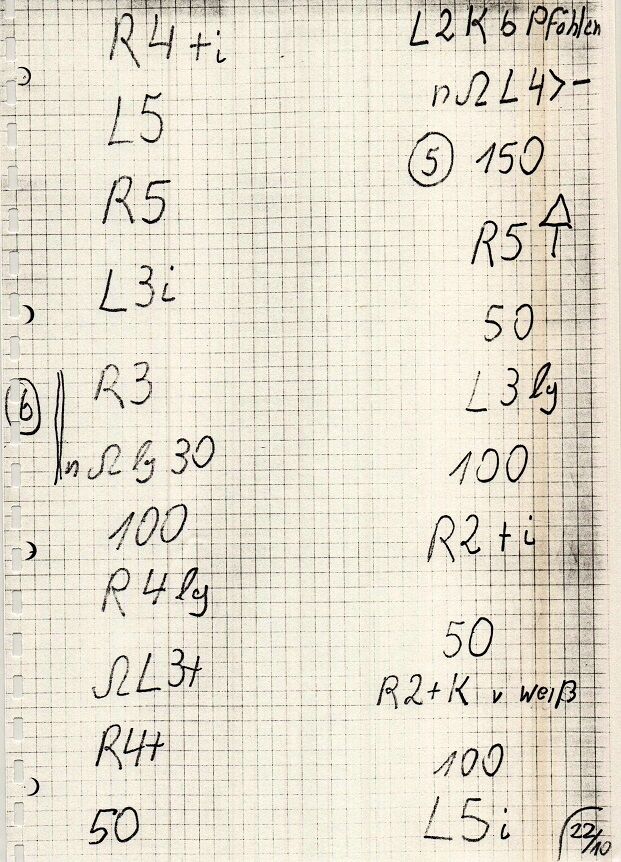 R4+i
L5
R5
L3i
R3
nΩ lg 30
100
R4 lg
ΩL3+
R4+
50
6
L2Kb Pfählen
nΩL4>-
5 150
R5
50
L3 lg
100
R2+i
50
R2+K v weiß
100
L5i
22/10